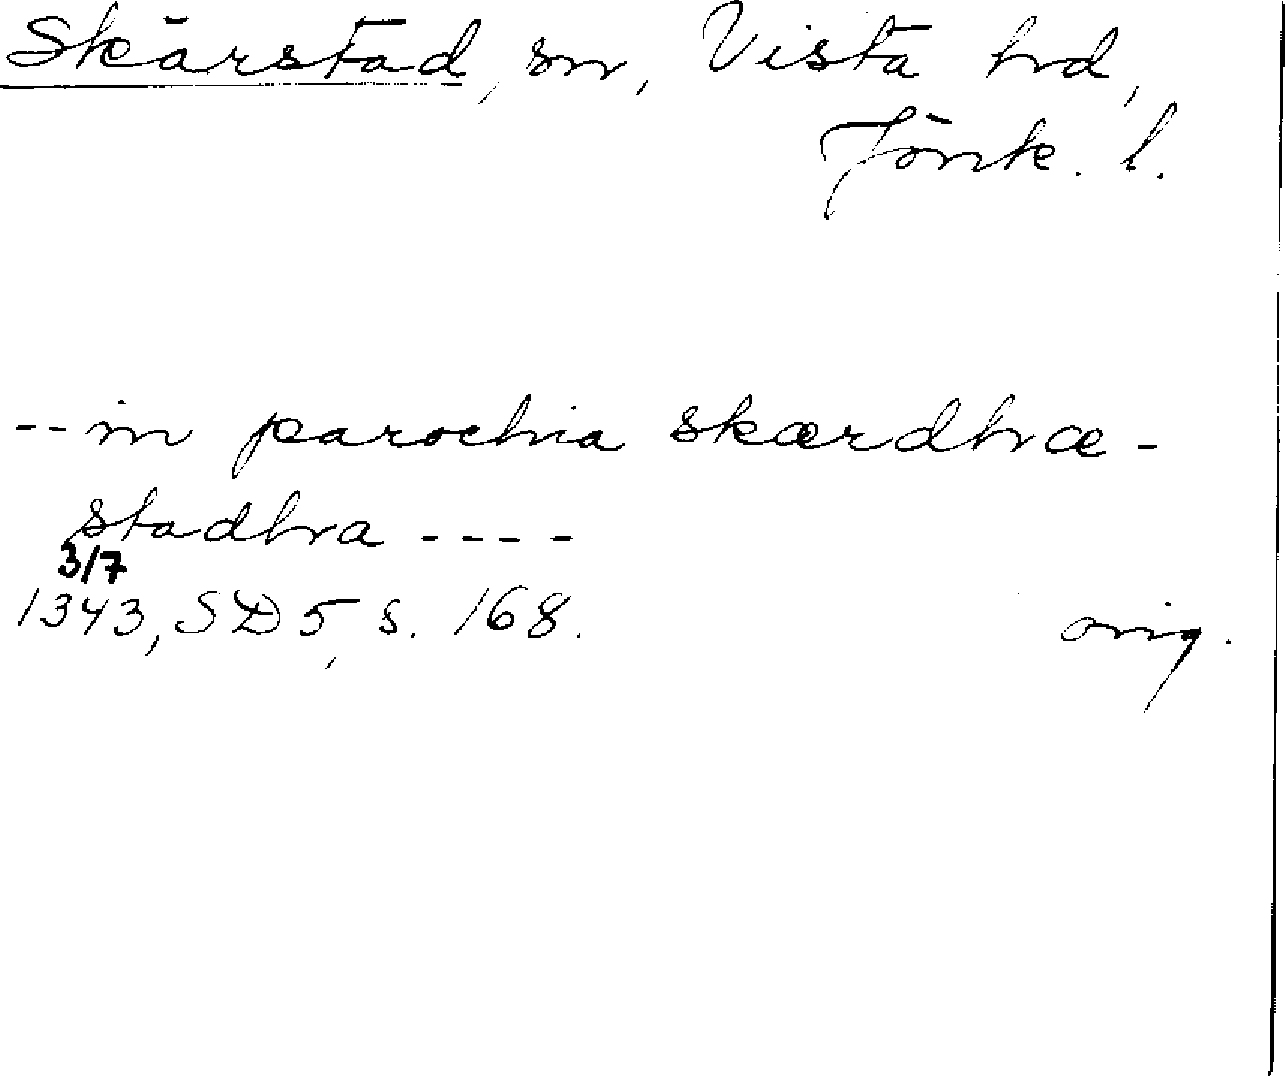 Skärstad, sn, Vista hd,
Jönk. l.
-- in parochia skærdhæ-
stadha ----
3/7
1343, SD 5, s. 168.
orig.